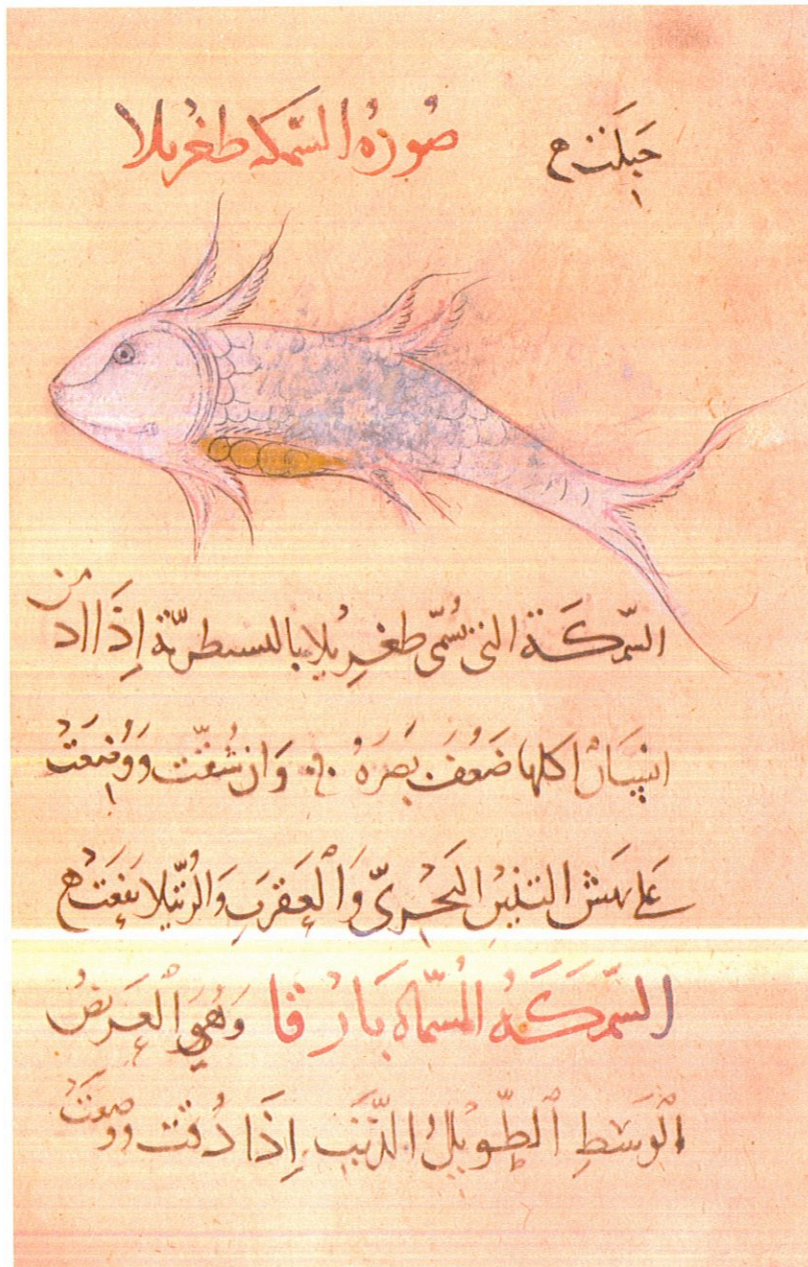 حبلت ح
صُورَهُ السَّمَكه طغْرِيلا
السَّمَكَة التي تُسَمّى طغرِيلا بالسطريّة إذَا ادمن
انسَانٌ اكلها ضَعُفَ بَصَرَهُ وَان شُقّت وَوُضِعَتْ
عَلى نَهش التنينُ البَحْرِيّ وَالْعَقْرَبِ وَالرُّتيلا نفعَتْ ح
السَّمَكَهُ المُسَمَّاه بَارُقا وَهُيَ الْعَرِيضُ
الْوَسَطِ الْطَّوِيلُ الذَّنَبِ إذَا دُقّت ووضعَتْ